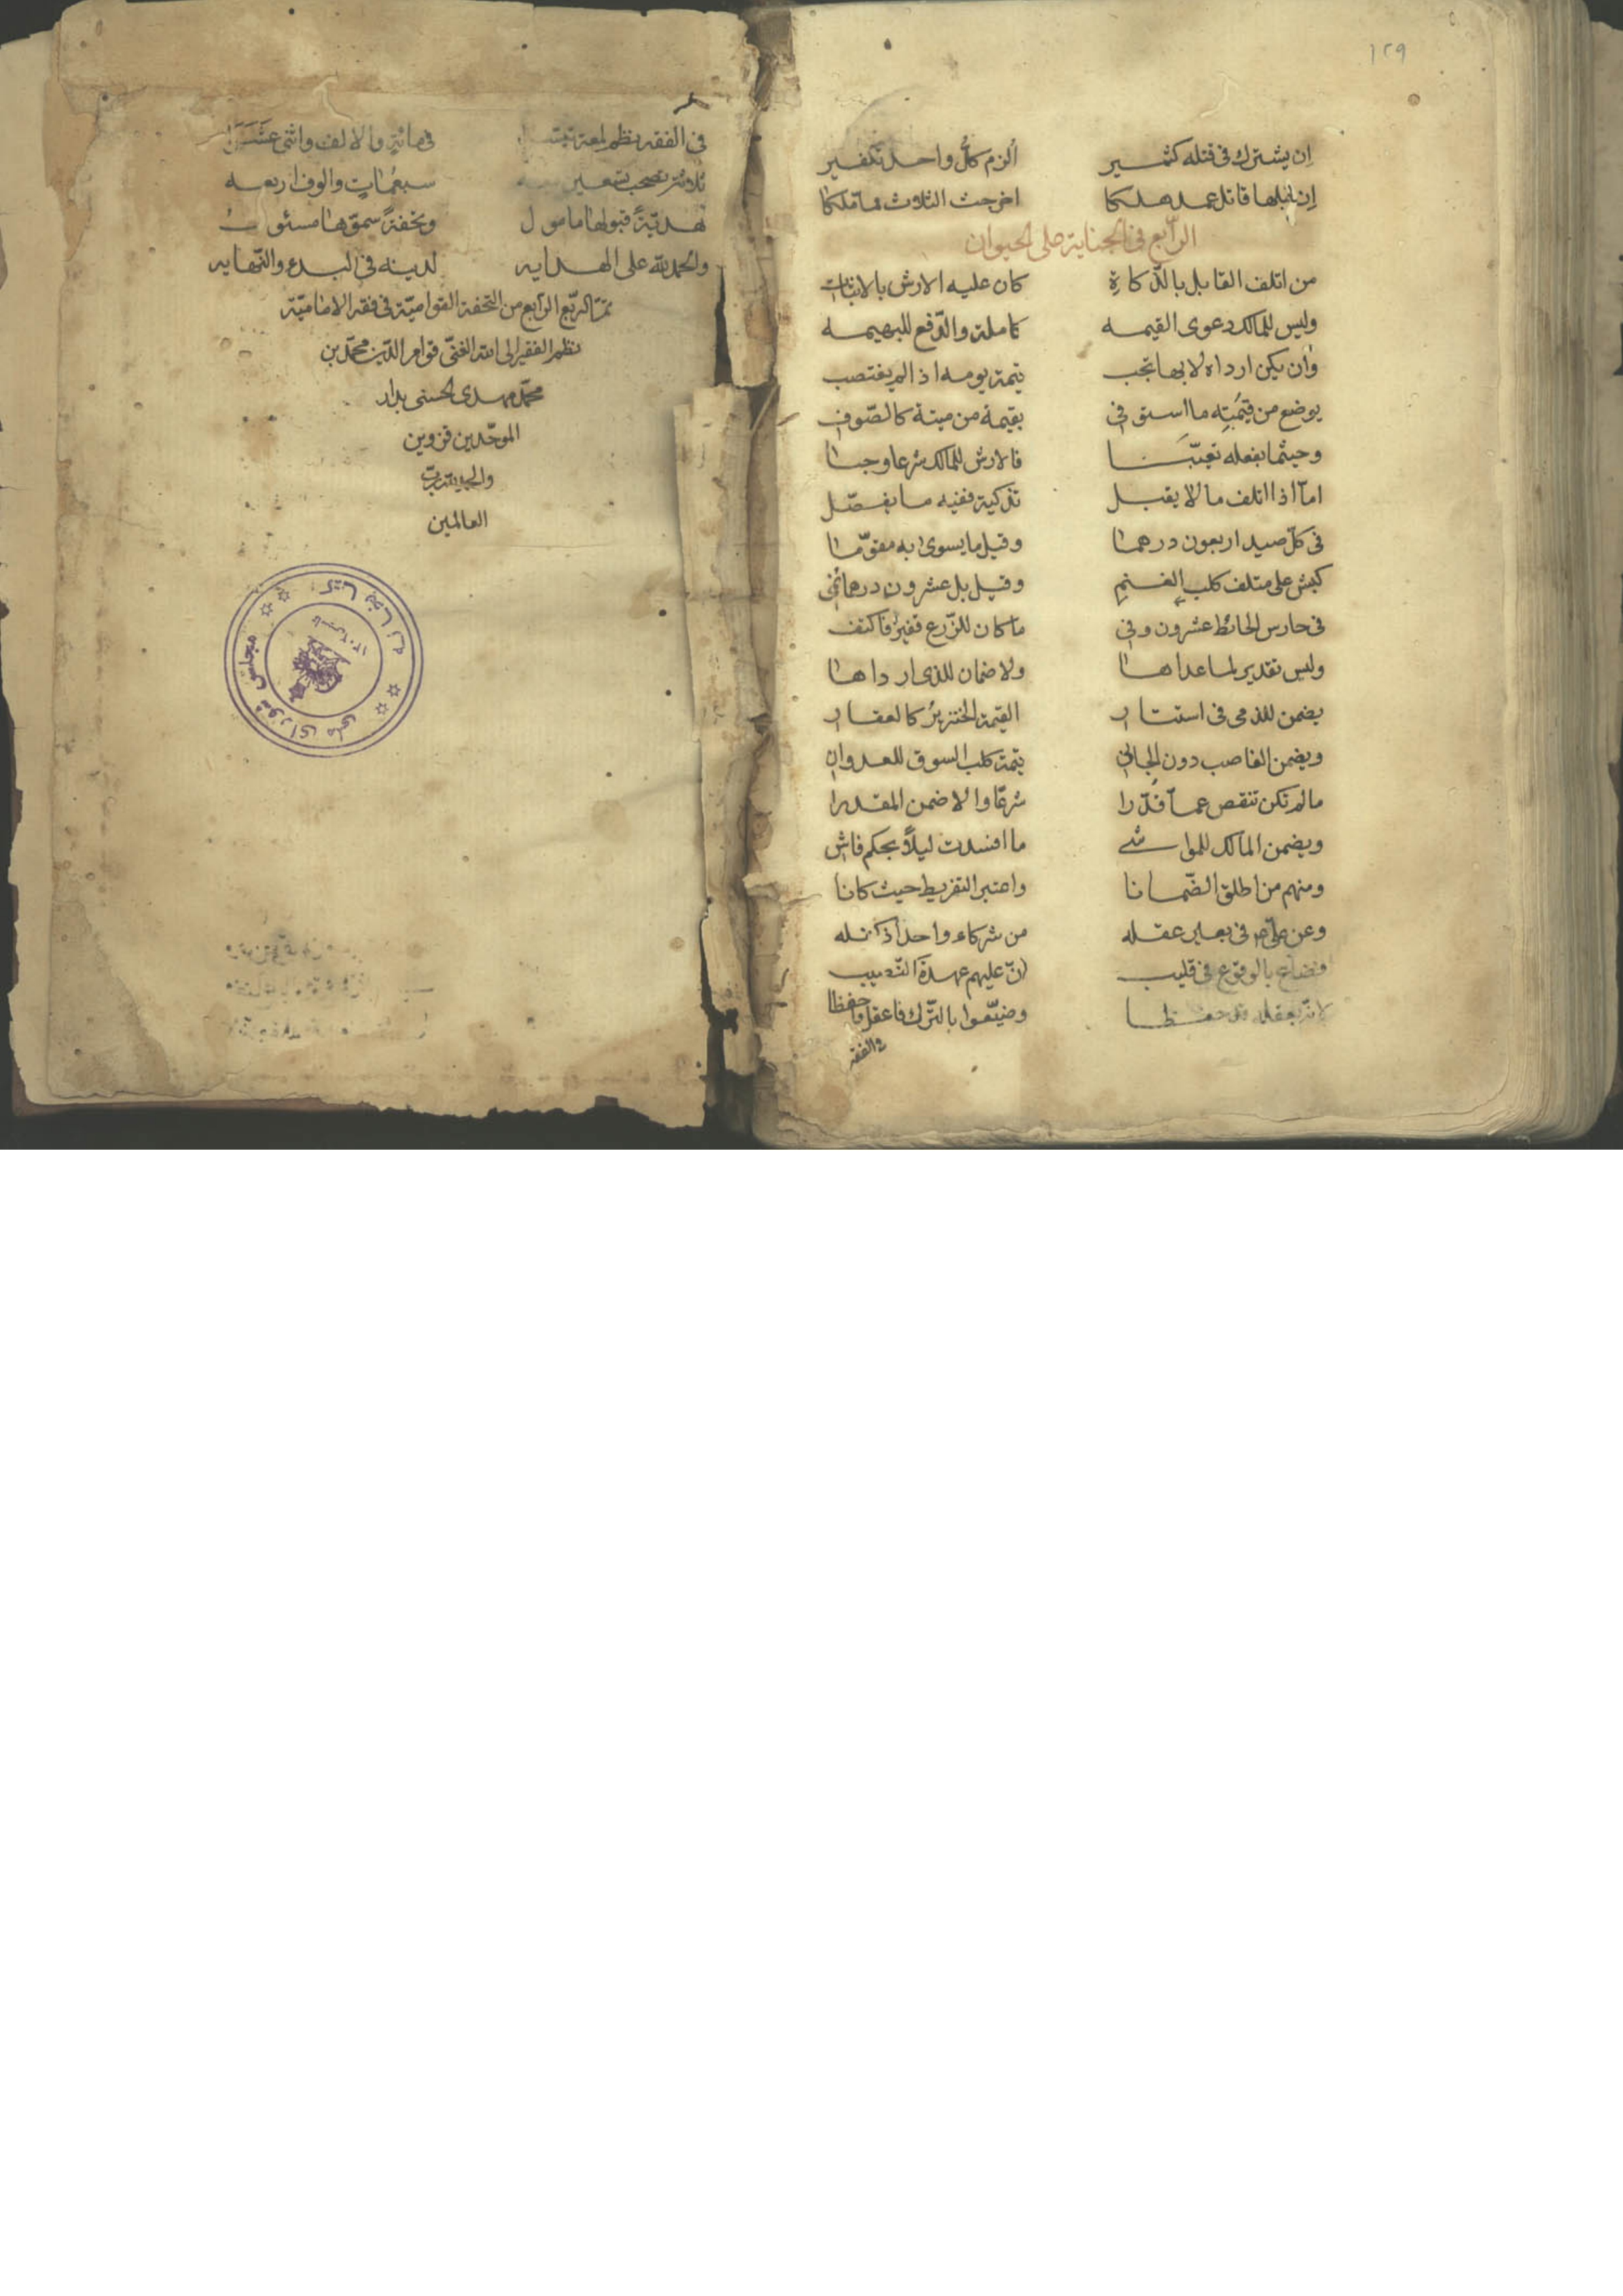 ١٢٩
إن يشترك في قتله كثير الزم كل واحد تكفير
إن قاتل عمد هلكا اخرجت الثلاث مما ملكا
الرابع في الجناية على الحيوان
من اتلف القابل بالذكاة كان عليه الارش بالاثبات
وليس للمالك دعوى القيمه كاملة والدفع للبهيمه
وان يكن ارداه لا بها تجب قيمة يومه اذ الم يغتصب
يوضع من قيمته ما استو في بقيمة من ميتة كالصوف
وحيثما بفعله تعيبا فالارش للمالك شرعا وجبا
اما اذا اتلف ما لا يقبل تذكية ففيه ما يفصل
في كل صيد اربعون درهما وقيل ما يسوى به مقوما
كبش على متلف كلب الغنم وقيل بل عشرون درهما
في حارس الحائط عشرون وفي ما كان للزرع قفيز فاكتف
وليس تقدير لما عداها ولا ضمان للذى ارداها
يضمن للذمى في استتار القيمة الخنزير كالعقار
ويضمن الغاصب دون الجاني قيمة كلب السوق للعدوان
ما لم تكن تنقص عما قدرا شرعا والا ضمن المقدرا
ويضمن المالك للمواشي ما افسدت ليلا بحكم فاش
ومنهم من اطلق الضمانا واعتبر التفريط حيث كانا
وعن على في بعير عقله من شركاء واحد اذ
فضاع بالوقوع في قليب ان عليهم عهدة
لانه بعقله حفظا وضيعوا بالترك فاعقل واحفظا
في الفقه
في الفقه نظم لمعة في مائة والالف واثنى عشرا
سبعمات والوف اربعه
هدية قبولها مامول وتحفة سموها مسئول
والحمد لله على الهدايه لدينه في البدء والنهايه
تم الربع الرابع من التحفة القوامية في فقه الامامية
نظم الفقير الى الله الغنى قوام الدين محمد بن
محمد مهدى الحسنى بدار
الموحدين قزوين
والحمد لله رب
العالمين
کتابخانه مجلس شورای ملی